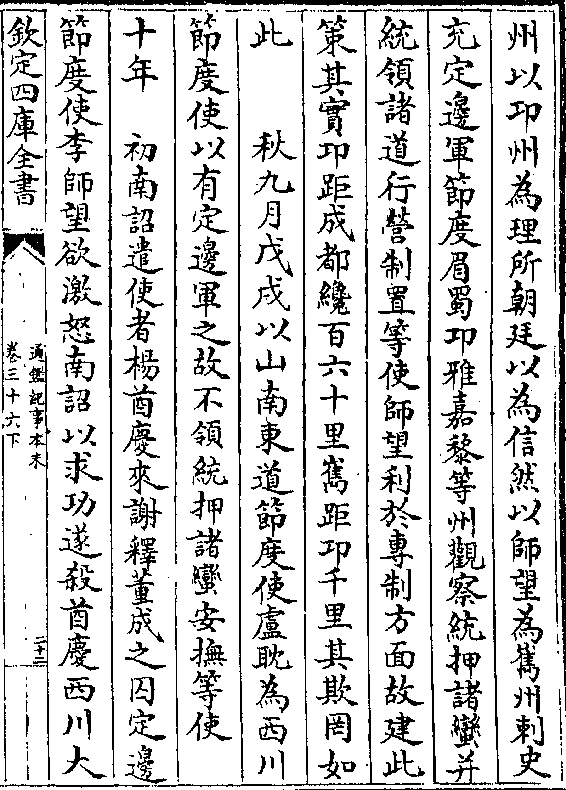 州以卭州為理所朝廷以為信然以師望為嶲州刺史
充定邊軍節度眉蜀卭雅嘉黎等州觀察統押諸蠻并
統領諸道行營制置等使師望利於專制方面故建此
策其實卭距成都纔百六十里嶲距卭千里其欺罔如
此　秋九月戊戌以山南東道節度使盧耽為西川
節度使以有定邊軍之故不領統押諸蠻安撫等使
十年　初南詔遣使者楊酋慶來謝釋董成之囚定邊
節度使李師望欲激怒南詔以求功遂殺酋慶西川大
欽定四庫全書
通鑑紀事本末
卷三十六下
二十二